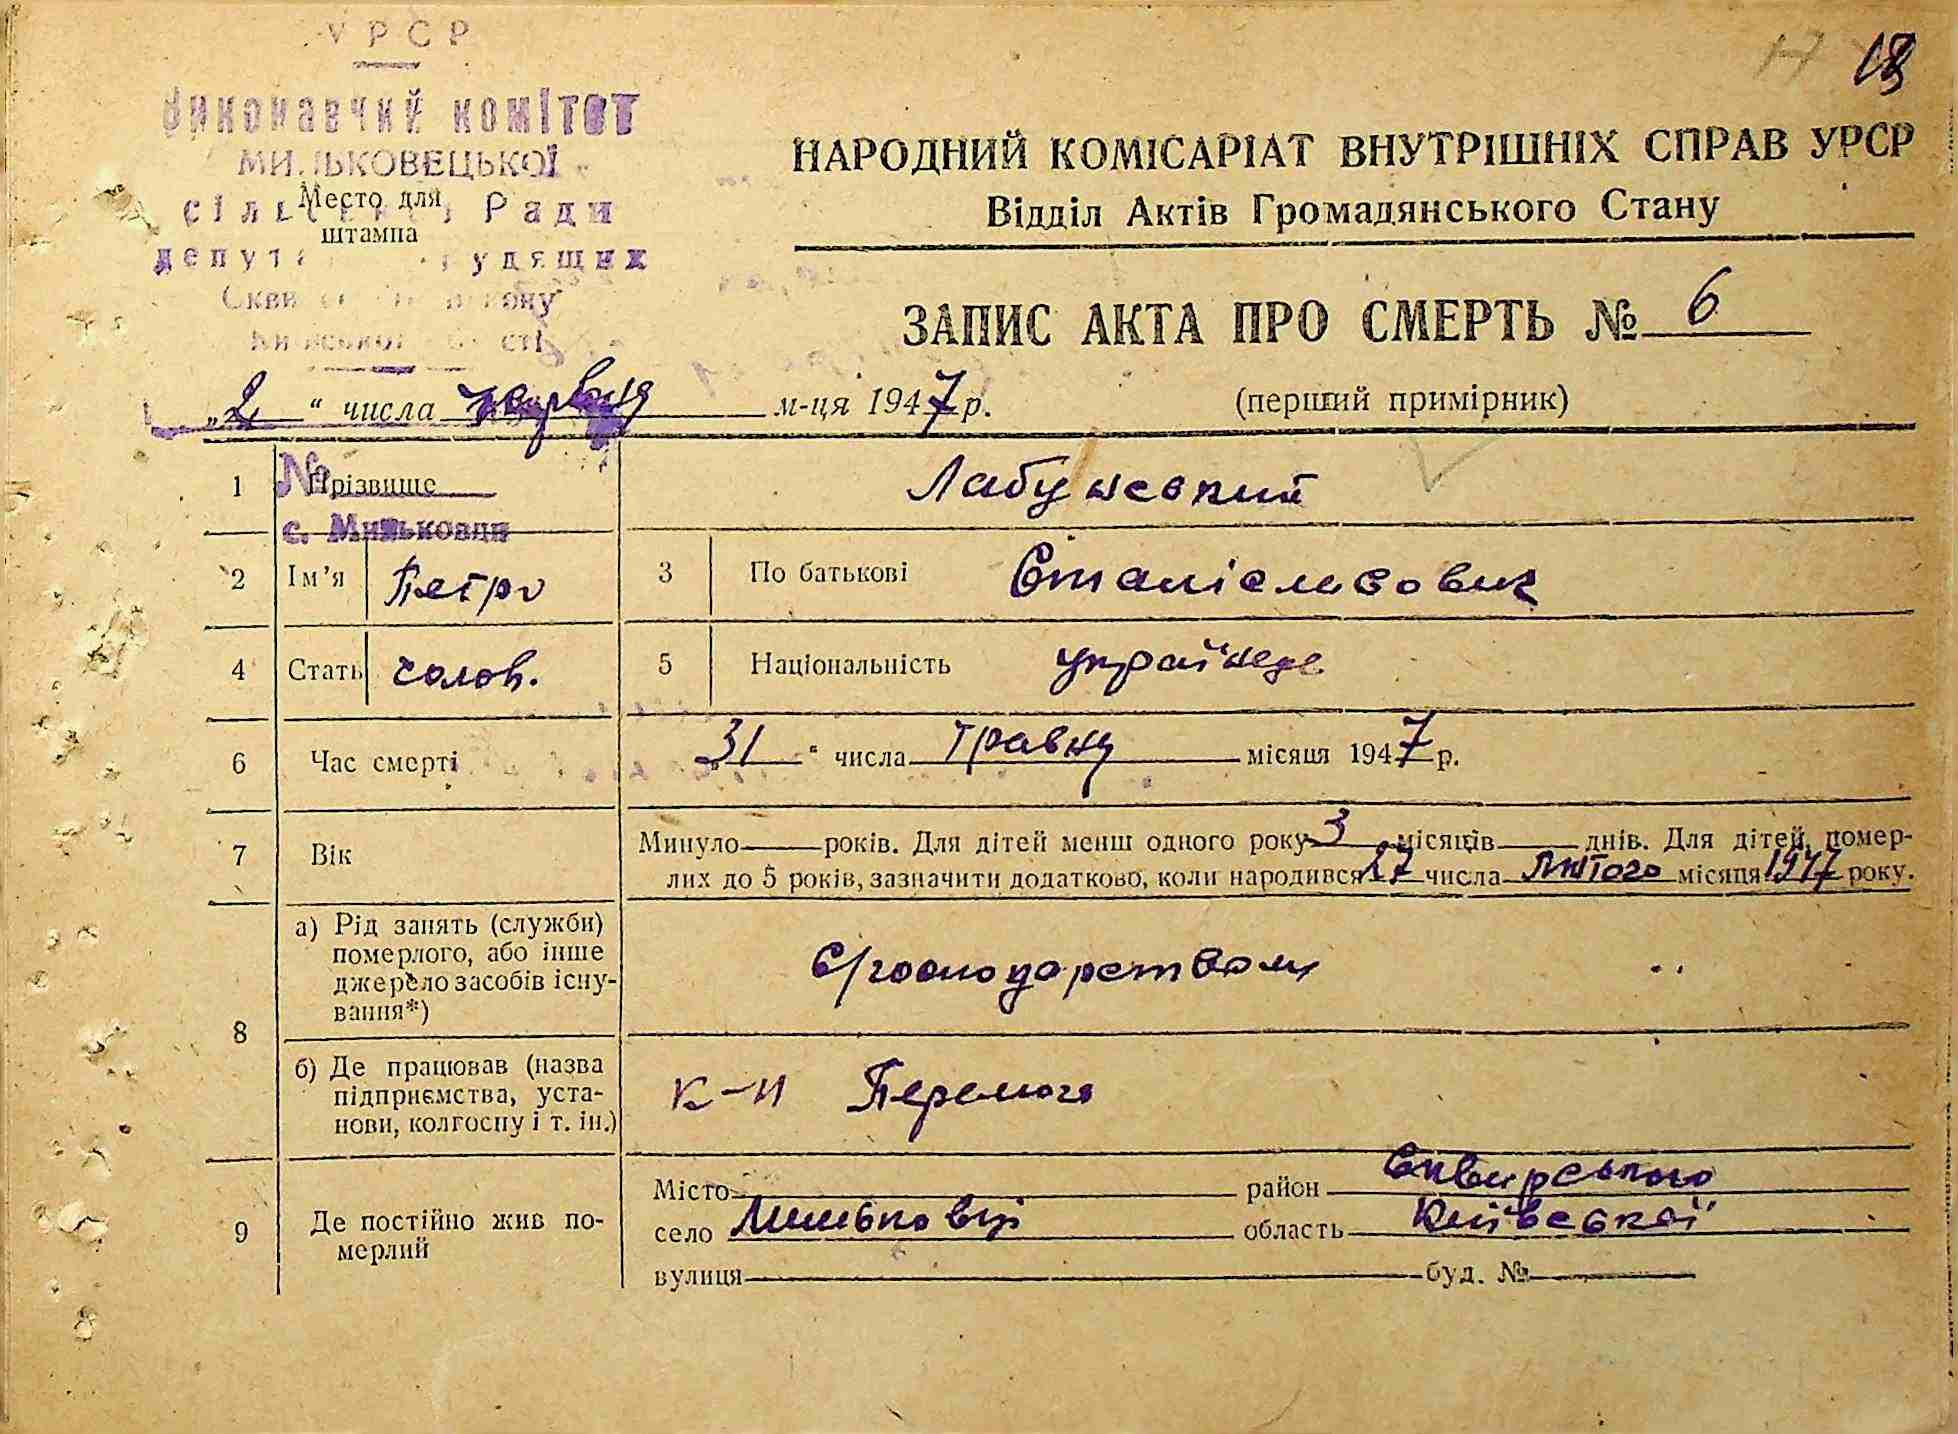 УРСР
Виконавчий комітет
МИНЬКОВЕЦЬКОЇ
сільської Ради
Место для
штампа
депутатів трудящих
Сквирського району
Київської області
18
НАРОДНИЙ КОМІСАРІАТ ВНУТРІШНІХ СПРАВ УРСР
Відділ Актів Громадянського Стану
ЗАПИС АКТА ПРО СМЕРТЬ № 6
„2“ числа червня м-ця 1947 р. (перший примірник)
№
1 Прізвище Лабунський
с. Миньковци
2 Ім’я Петро 3 По батькові Станіславович
4 Стать чолов. 5 Національність українец
6 Час смерті „31“ числа травня місяця 1947 р.
7 Вік Минуло — років. Для дітей менш одного року 3 місяців — днів. Для дітей, помер-
лих до 5 років, зазначити додатково, коли народився 27 числа Лютого місяця 1947 року.
8 а) Рід занять (служби) померлого, або інше джерело засобів існу-вання*) С/господарством
б) Де працював (назва підприємства, уста-нови, колгоспу і т. ін.) к-п Перемога
9 Де постійно жив по-мерлий Місто район Сквирського
село Миньковці область Київської
вулиця буд. №